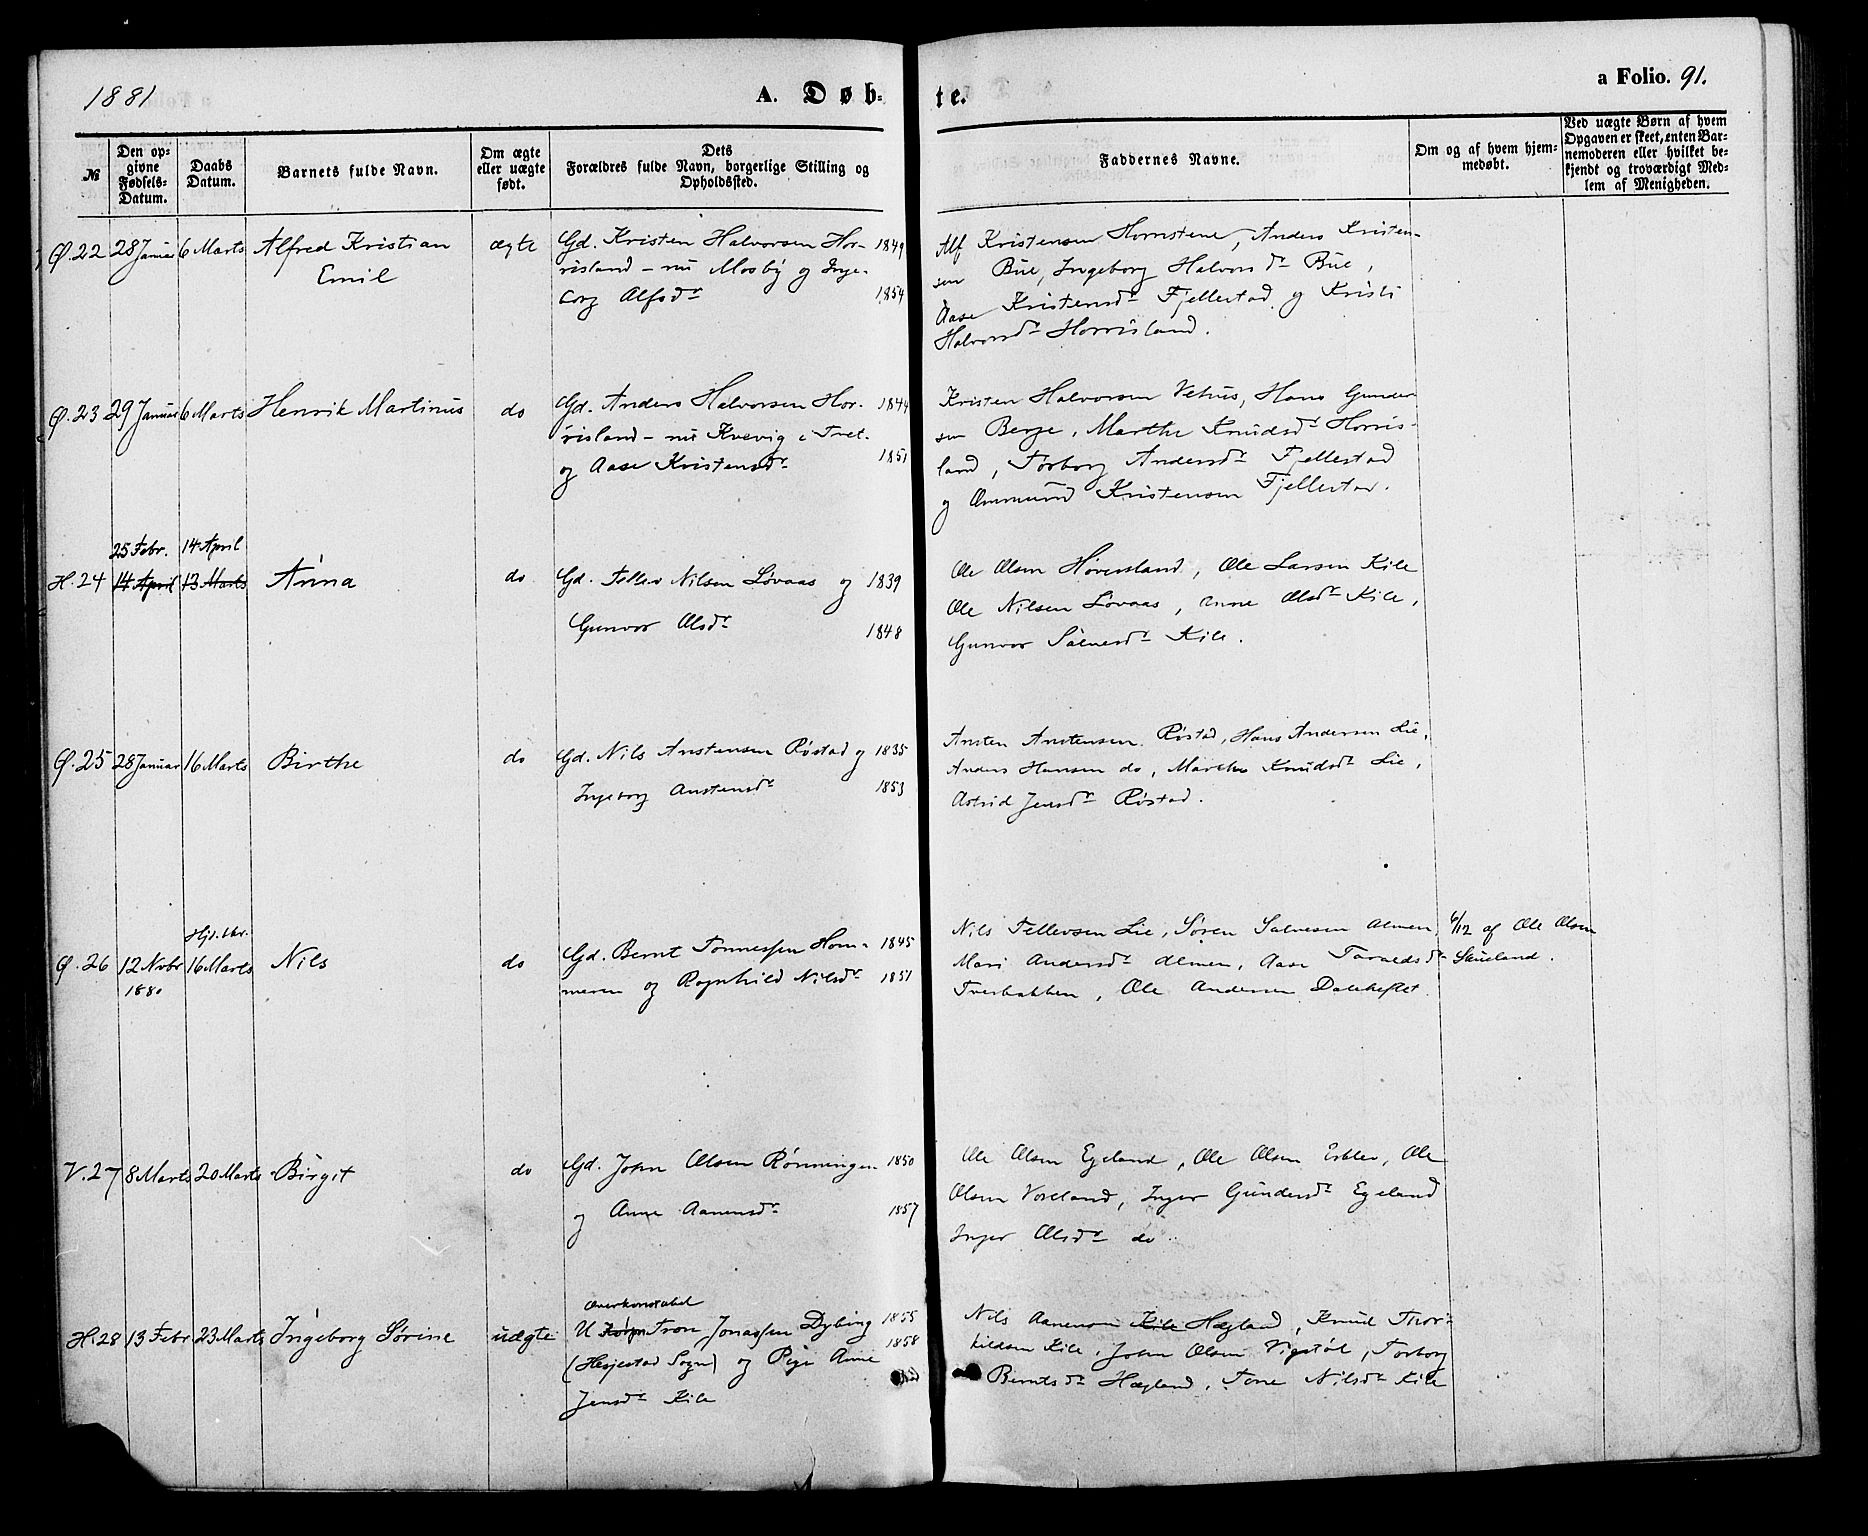 1881
A. Døb-
te.
a Folio. 91.
№
Den op-
givne
Fødsels-
Datum.
Daabs
Datum.
Barnets fulde Navn.
Om ægte
eller uægte
født.
Dets
Forældres fulde Navn, borgerlige Stilling og
Opholdssted.
Faddernes Navne.
Om og af hvem hjem-
medøbt.
Ved uægte Børn af hvem
Opgaven er skeet, enten Bar-
nemoderen eller hvilket be-
kjendt og troværdigt Med-
lem af Menigheden.
Ø. 22 28 Januar 6 Marts Alfred Kristian
Emil
ægte
Gd. Kristen Halvorsen Hor- 1849
risland - nu Mosby og Inge-
borg Alfsdr 1854
Alf Kristensen Homstene, Anders Kristen-
sen Bue, Ingeborg Halvorsdr Bue,
Aase Kristensdr Fjellestad og Kristi
Halvorsdr Horrisland.
Ø. 23 29 Januar 6 Marts Henrik Martinus
do
Gd. Anders Halvorsen Hor- 1844
risland - nu Kvevig i Tvet.
og Aase Kristensdr 1851
Kristen Halvorsen Vehus, Hans Gunder
sen Berge, Marthe Knudsdr Horris-
land, Torborg Andersdr Fjellestad
og Ommund Kristensen Fjellestad.
25 Febr. 14 April
H. 24 14 April 13 Marts Anna
do
Gd. Tellev Nilsen Løvaas og 1839
Gunvor Olsdr 1848
Ole Olsen Høversland, Ole Larsen Kile
Ole Nilsen Løvaas, Anne Olsdr Kile,
Gunvor Salvesdr Kile.
Ø. 25 28 Januar 16 Marts Birthe
do
Gd. Nils Anstensen Røstad og 1835
Ingeborg Anstensdr 1853
Ansten Anstensen Røstad, Hans Andersen Lie,
Anders Hansen do, Marthe Knudsdr Lie,
Astrid Jensdr Røstad.
Hjd. bkr.
Ø. 26 12 Novbr 16 Marts Nils
1880
do
Gd. Bernt Tønnessen Hom- 1845
meren og Ragnhild Nilsdr 1851
Nils Tellevsen Lie, Søren Salvesen Olmen,
Mari Andersdr Olmen, Aase Taraldsdr
Tverbakken, Ole Andersen Daleheftet.
6/12 af Ole Olsen
Saueland.
V. 27 8 Marts 20 Marts Birgit
do
Gd. John Olsen Rønningen 1850
og Anne Aanensdr 1857
Ole Olsen Egeland, Ole Olsen Erklev, Ole
Olsen Voreland, Inger Gundersdr Egeland
Inger Olsdr do
H. 28 13 Febr 23 Marts Ingeborg Sørine
uægte
Overkonstabel
U Korp Tron Jonassen Dybing 1855
(Hesjestad Sogn) og Pige Anne 1858
Jensdr Kile
Nils Aanensen Kile Hægland, Knud Thor-
kildsen Kile, John Olsen Vigstøl, Torborg
Berntsdr Hægland, Tone Nilsdr Kile